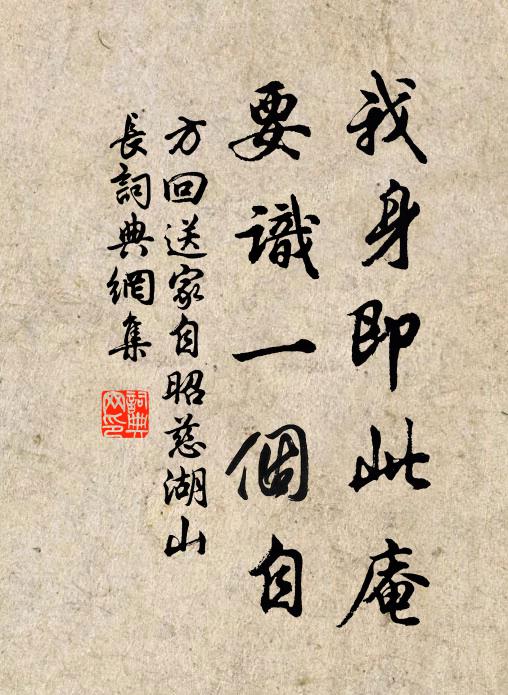 我身即此庵
要識一個自
方回送家自昭慈湖山
長詞典網集
詞典网印